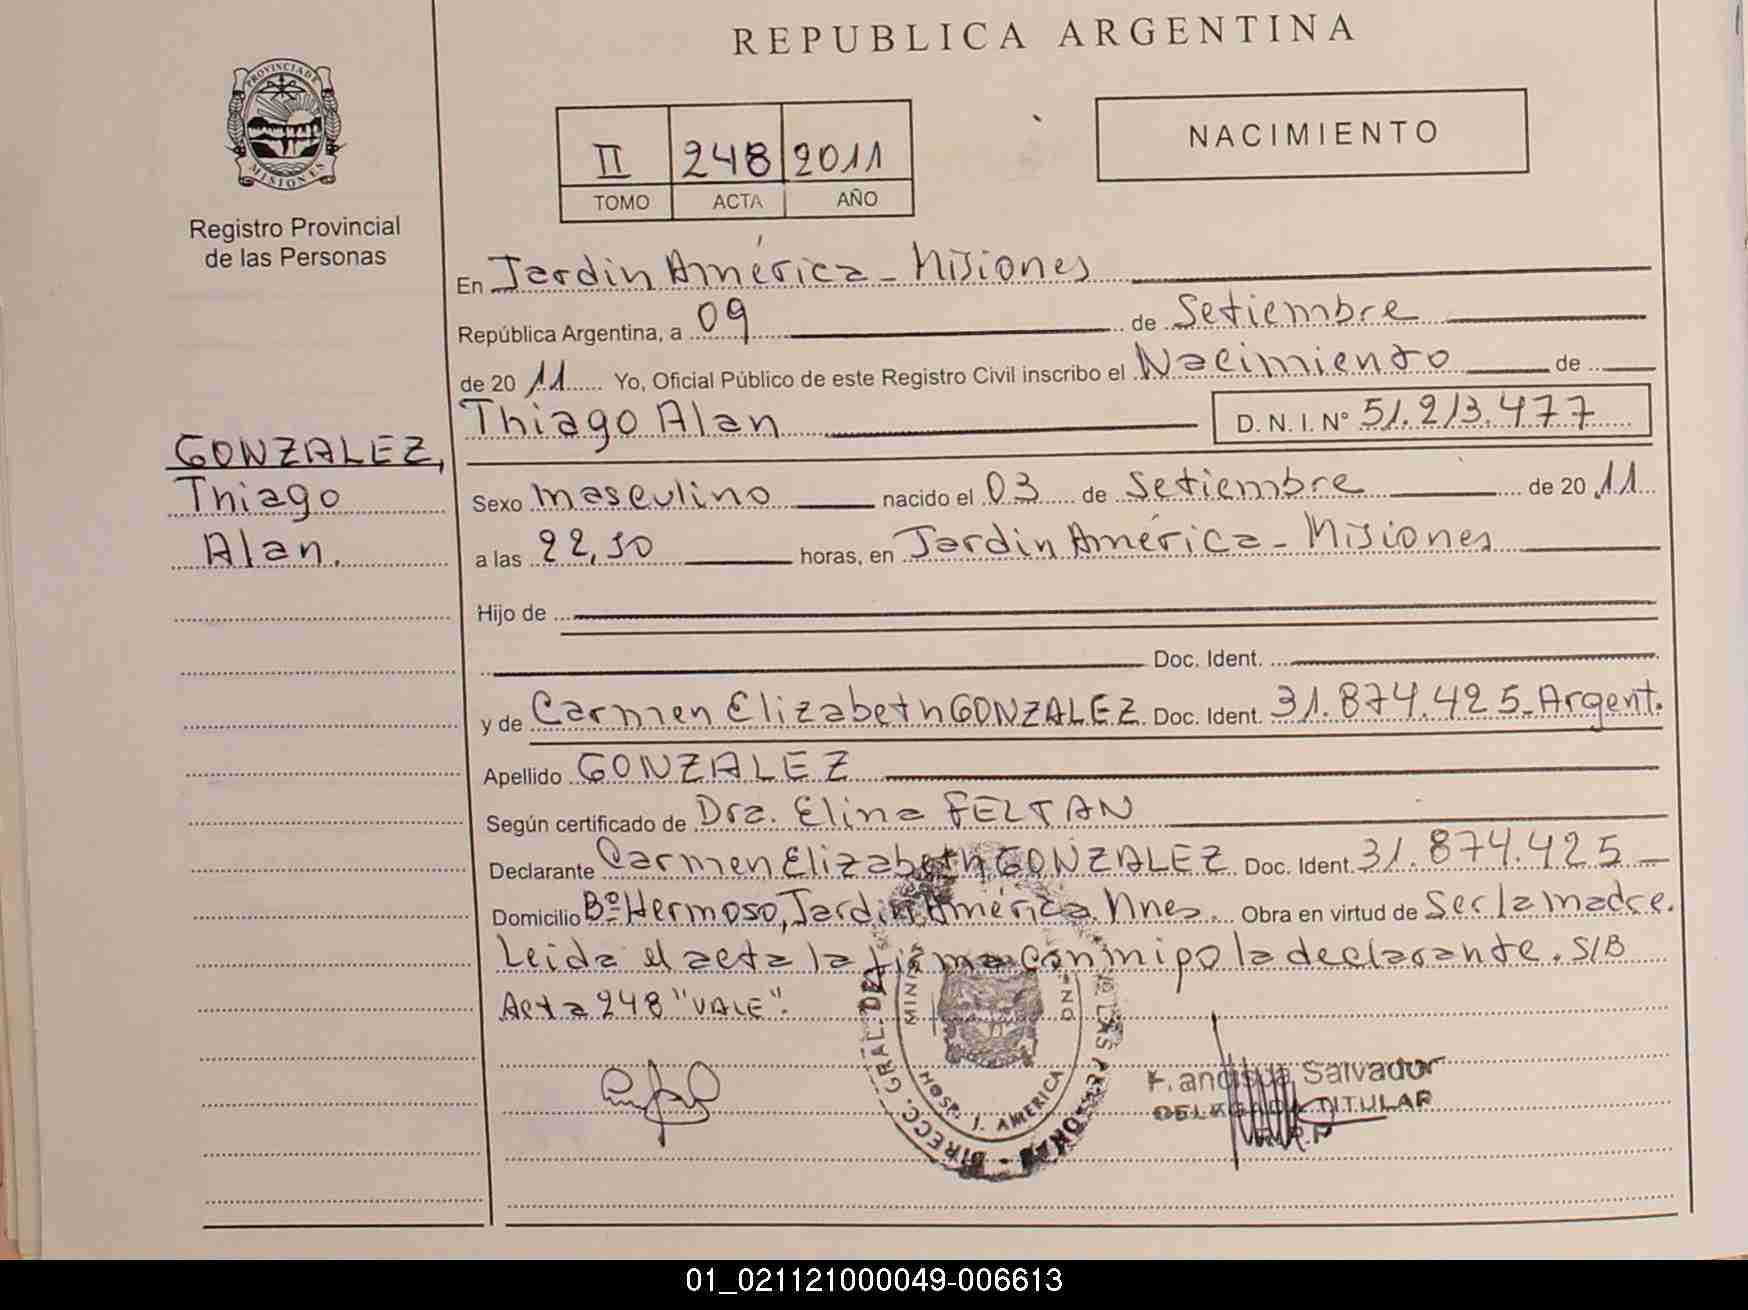 REPUBLICA ARGENTINA
PROVINCIA DE
MISIONES
Registro Provincial
de las Personas
II 248 2011
TOMO ACTA AÑO
NACIMIENTO
En Jardín América - Misiones
República Argentina, a 09 de Setiembre
de 20 11 Yo, Oficial Público de este Registro Civil inscribo el Nacimiento de
Thiago Alan D. N. I. N° 51.213.477
GONZALEZ,
Thiago
Alan.
Sexo masculino nacido el 03 de Setiembre de 20 11
a las 22,30 horas, en Jardín América - Misiones
Hijo de
Doc. Ident.
y de Carmen Elizabeth GONZALEZ Doc. Ident. 31.874.425 - Argent.
Apellido GONZALEZ
Según certificado de Dra. Elina FELTAN
Declarante Carmen Elizabeth GONZALEZ Doc. Ident. 31.874.425
Domicilio Bº Hermoso, Jardín América. Mnes. Obra en virtud de Ser la madre.
Leida el acta la firma conmigo la declarante. S/B
Acta 248 "VALE".
DIRECC. GRAL. DE LAS PERSONAS
J. AMERICA
Salvador
TITULAR
01_021121000049-006613